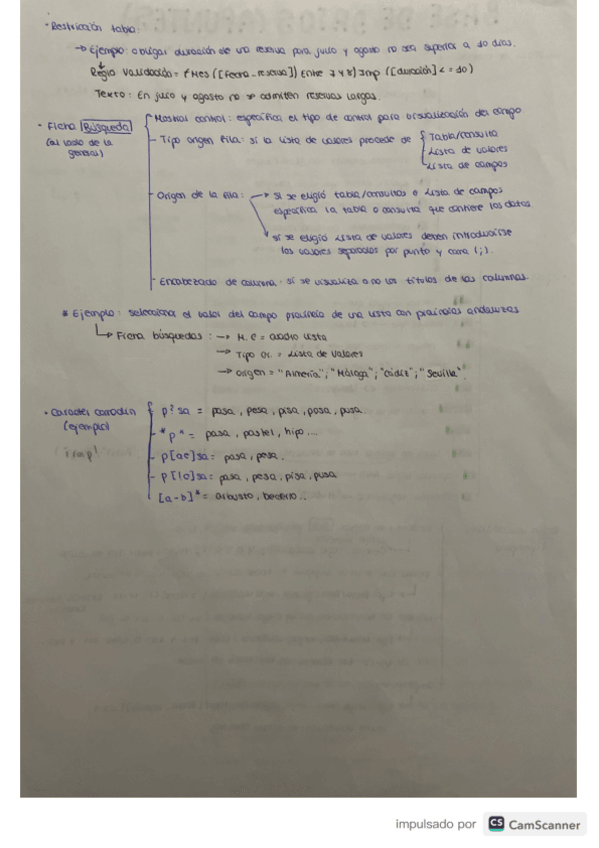 · Restricción tabla.
→ Ejemplo: obligar duración de una reserva para julio y agosto no sea superior a 10 días.
Regla validación = (Mes ([Fecha_reserva]) Entre 7 y 8) Imp ([duración] <= 10)
Texto: En julio y agosto no se admiten reservas largas.
· Ficha Búsqueda
(al lado de la general)
Mostrar control: especifica el tipo de control para visualización del campo
- Tipo origen fila: si la lista de valores procede de
Tabla/consulta
Lista de valores
Lista de campos
- Origen de la fila: → si se eligió tabla/consultas o lista de campos
especifica la tabla o consulta que contiene los datos
si se eligió lista de valores deben introducirse
los valores separados por punto y coma (;).
- Encabezado de columna: si se visualiza o no los títulos de las columnas.
* Ejemplo: selecciona el valor del campo provincia de una lista con provincias andaluzas
Ficha búsquedas: → M.C = cuadro lista
→ Tipo = Lista de valores
→ Origen = "Almería"; "Málaga"; "Cádiz"; "Sevilla".
· Carácter comodín
(ejemplo)
(imp!)
p?sa = pasa, pesa, pisa, posa, pusa.
- *p* = pasa, pastel, hipo...
- p[ae]sa = pasa, pesa.
- p[!o]sa = pasa, pesa, pisa, pusa
[a-b]* = arbusto, becerro..
impulsado por CS CamScanner